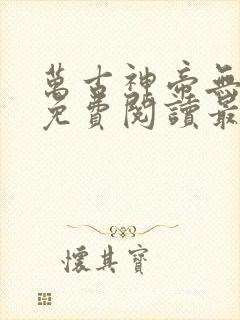 萬古神帝無
免費閱讀最
懷其寶